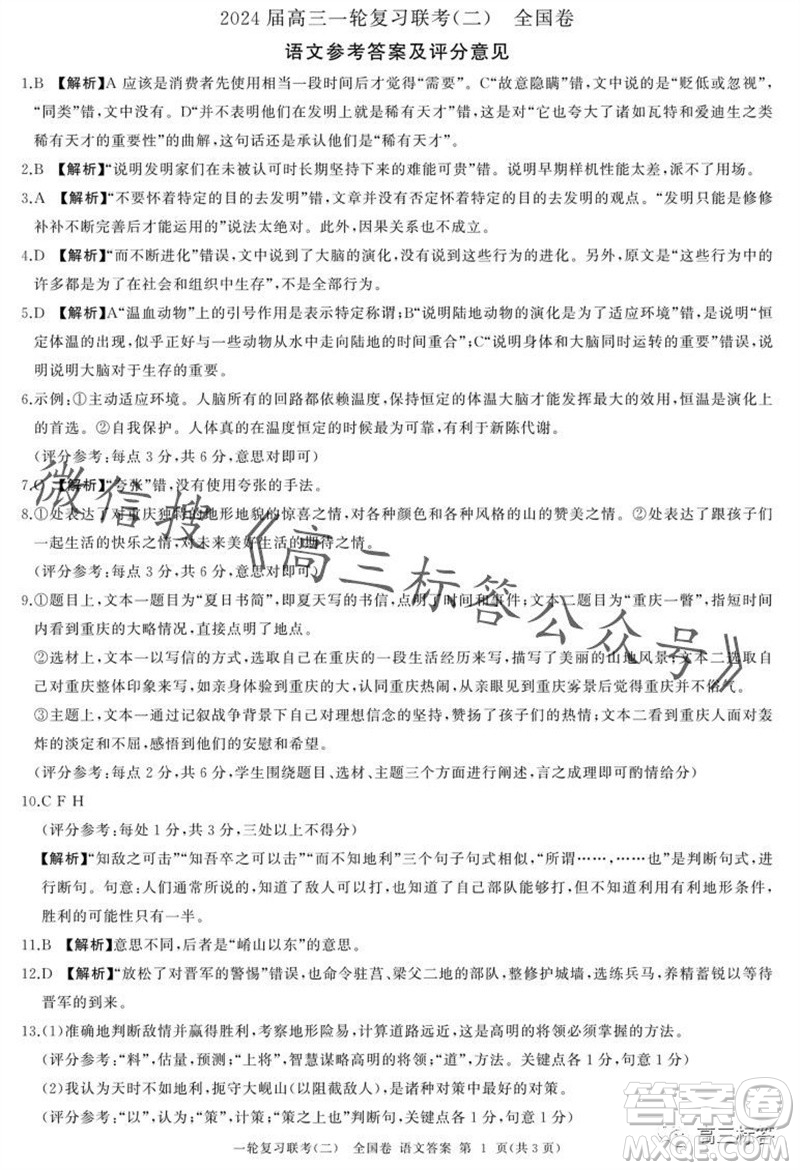 2024 届高三一轮复习联考(二) 全国卷
语文参考答案及评分意见
1.B 【解析】A 应该是消费者先使用相当一段时间后才觉得“需要”。C“故意隐瞒”错，文中说的是“贬低或忽视”，
“同类”错，文中没有说是“同类”。D“并不表明他或她是稀有天才”错，文中说的是对“它也夸大了诸如瓦特和爱迪生之类
稀有天才的重要性”的曲解，这句话还承认他们是“稀有天才”。
2.B 【解析】“说明发明家们在未被认可时长期坚持下来的难能可贵”错。说明早期样机性能太差，派不了用场。
3.A 【解析】“不要怀着特定的目的去发明”错，文章并没有否定怀着特定的目的去发明的观点。“发明只能是修修
补补不断完善后才能运用的”说法太绝对。此外，因果关系也不成立。
4.D 【解析】“而不断进化”错误，文中谈到了大脑的演化，没有说这些行为的进化。另外，原文是“这些行为中的
许多都是为了在社会和组织中生存”，不是全部行为。
5.D 【解析】A“温血动物”上的引号作用是表示特定称谓；B“说明陆地动物的演化是为了适应环境”错，是说明“恒
定体温的出现似乎恰好与动物从水中走向陆地的时间重合”；C“说明身体和大脑同时重要”错误，是为了
说明说明大脑对于生存的重要。
6.示例：①主动适应环境。人脑所有的回路都依赖温度，保持恒定的体温大脑才能发挥最大的效用，恒温是演化上
的首选。②自我保护。人体真的在温度恒定的时候最为可靠，有利于新陈代谢。
(评分参考：每点 3 分，共 6 分，意思对即可)
7.C 【解析】“夸张”错，没有使用夸张的手法。
8.①处表达了对重庆独特的地形地貌的惊喜之情，对各种颜色和各种风格的山的赞美之情。②处表达了跟孩子们
一起生活的快乐之情，对未来美好生活的期待之情。
(评分参考：每点 3 分，共 6 分，意思对即可)
9.①题目上，文本一题目为“夏日书简”，即夏天写的书信，点明了时间和事件；文本二题目为“重庆一瞥”，指短时间
内看到重庆的大略情况，直接点明了地点。
②选材上，文本一以写信的方式，选取自己在重庆的一段生活经历来写，描写了美丽的山地风景；文本二选取自
己对重庆整体印象来写，有具体体验感到重庆的大，认识重庆热闹，从亲眼见到重庆雾景后觉得重庆并不俗气。
③主题上，文本一通过记叙战争背景下自己对理想信念的坚持，赞扬了孩子们的热情；文本二看到重庆人面对轰
炸的淡定和不屈，感悟到他们的安慰和希望。
(评分参考：每点 2 分，共 6 分，学生围绕题目、选材、主题三个方面进行阐述，言之成理即可酌情给分)
10.C F H
(评分参考：每处 1 分，共 3 分，三处以上不得分)
【解析】“知敌之可击”“知吾卒之可以击”“而不知地利”三个句子句式相似，“所谓……，……也”是判断句式，进
行断句。句意：人们通常所说的，知道了敌人可以打，又知道了自己部队能够打，但是不知道有利地形条件，
胜利的可能性只有一半。
11.B 【解析】意思不同，后者是“崤山以东”的意思。
12.D 【解析】“放松了对晋军的警惕”错误，他命令驻莒、梁父二地的部队，整修维护城墙，选练兵马，养精蓄锐等待
晋军的到来。
13.(1)准确地判断敌情并赢得胜利，考察地形险易，计算道路远近，这是高明的将领必须掌握的方法。
(评分参考：“料”，估量，预测；“上将”，智慧谋略高明的将领；“道”，方法。关键点各 1 分，句意 1 分)
(2)我认为天时不如地利，扼守大岘山(以阻截敌方)，是上等的绝好的对策。
(评分参考：“以”，认为；“策”，计策；“策之”，计策，对策。关键点各 1 分，句意 1 分)
一轮复习联考(二) 全国卷 语文答案 第 1 页(共 3 页)
微信搜《高三标答公众号》
答案圈
MXQE.COM
高三标答